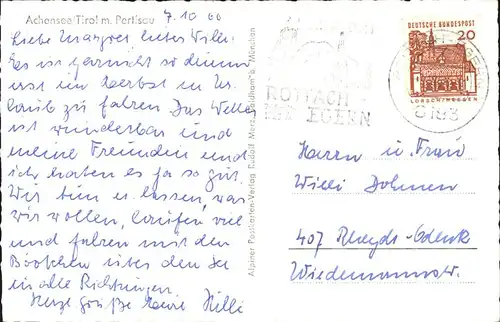 Achensee/Tirol m. Pertisau
7.10.66
Liebe Margret lieber Willi.
Es ist garnicht so dumm
erst im Herbst in Ur
laub zu fahren. Das Wetter
ist wunderbar und
meine Freunden und
ich haben es ja so gut.
Wir tun u. lassen, was
wir wollen, laufen viel
und fahren mit den
Bötchen über den See
in alle Richtungen.
Herzl Grüße Eure Hilli
Alpiner Postkarten-Verlag Rudolf Mathis
ROTTACH
EGERN
DEUTSCHE BUNDESPOST
20
LORSCH/HESSEN
8183
Herrn u. Frau
Willi Dohmen
407 Rheydt-Odenk
Wiedemannstr.